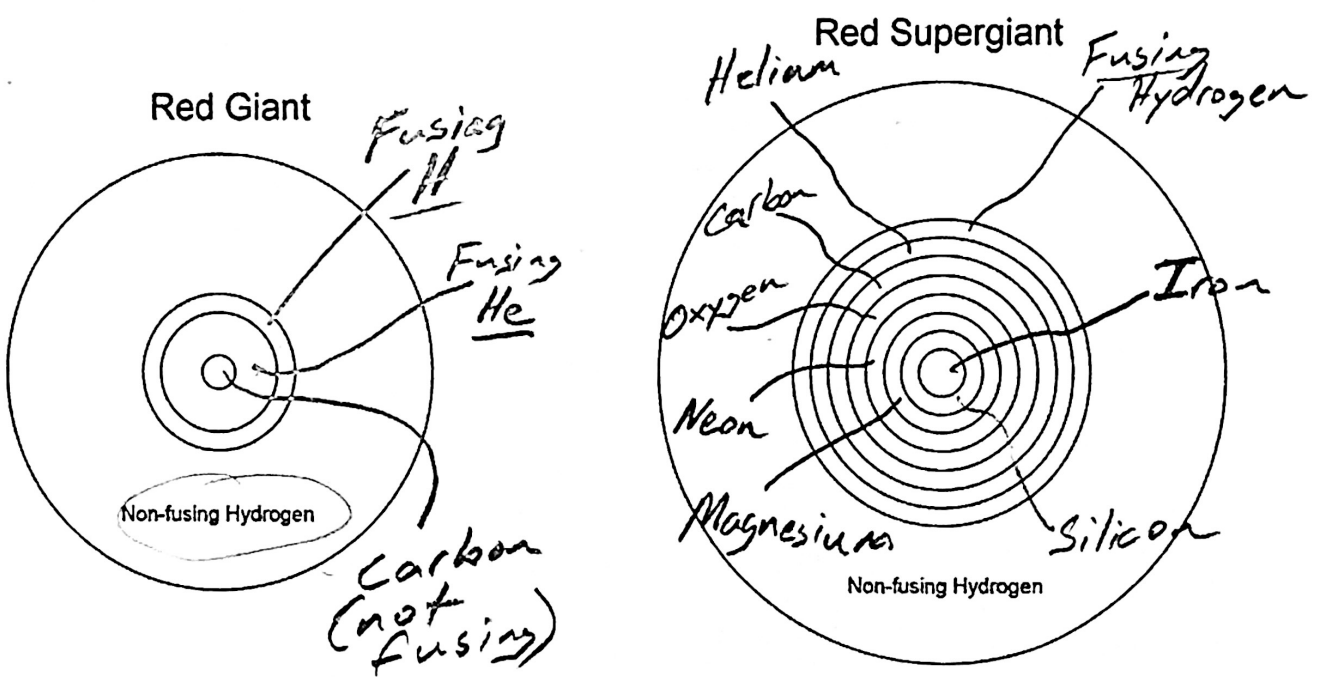 Red Giant
Fusing
H
Fusing
He
Non-fusing Hydrogen
Carbon
(not
fusing)
Red Supergiant
Helium
Fusing
Hydrogen
Carbon
Oxygen
Iron
Neon
Magnesium
Silicon
Non-fusing Hydrogen